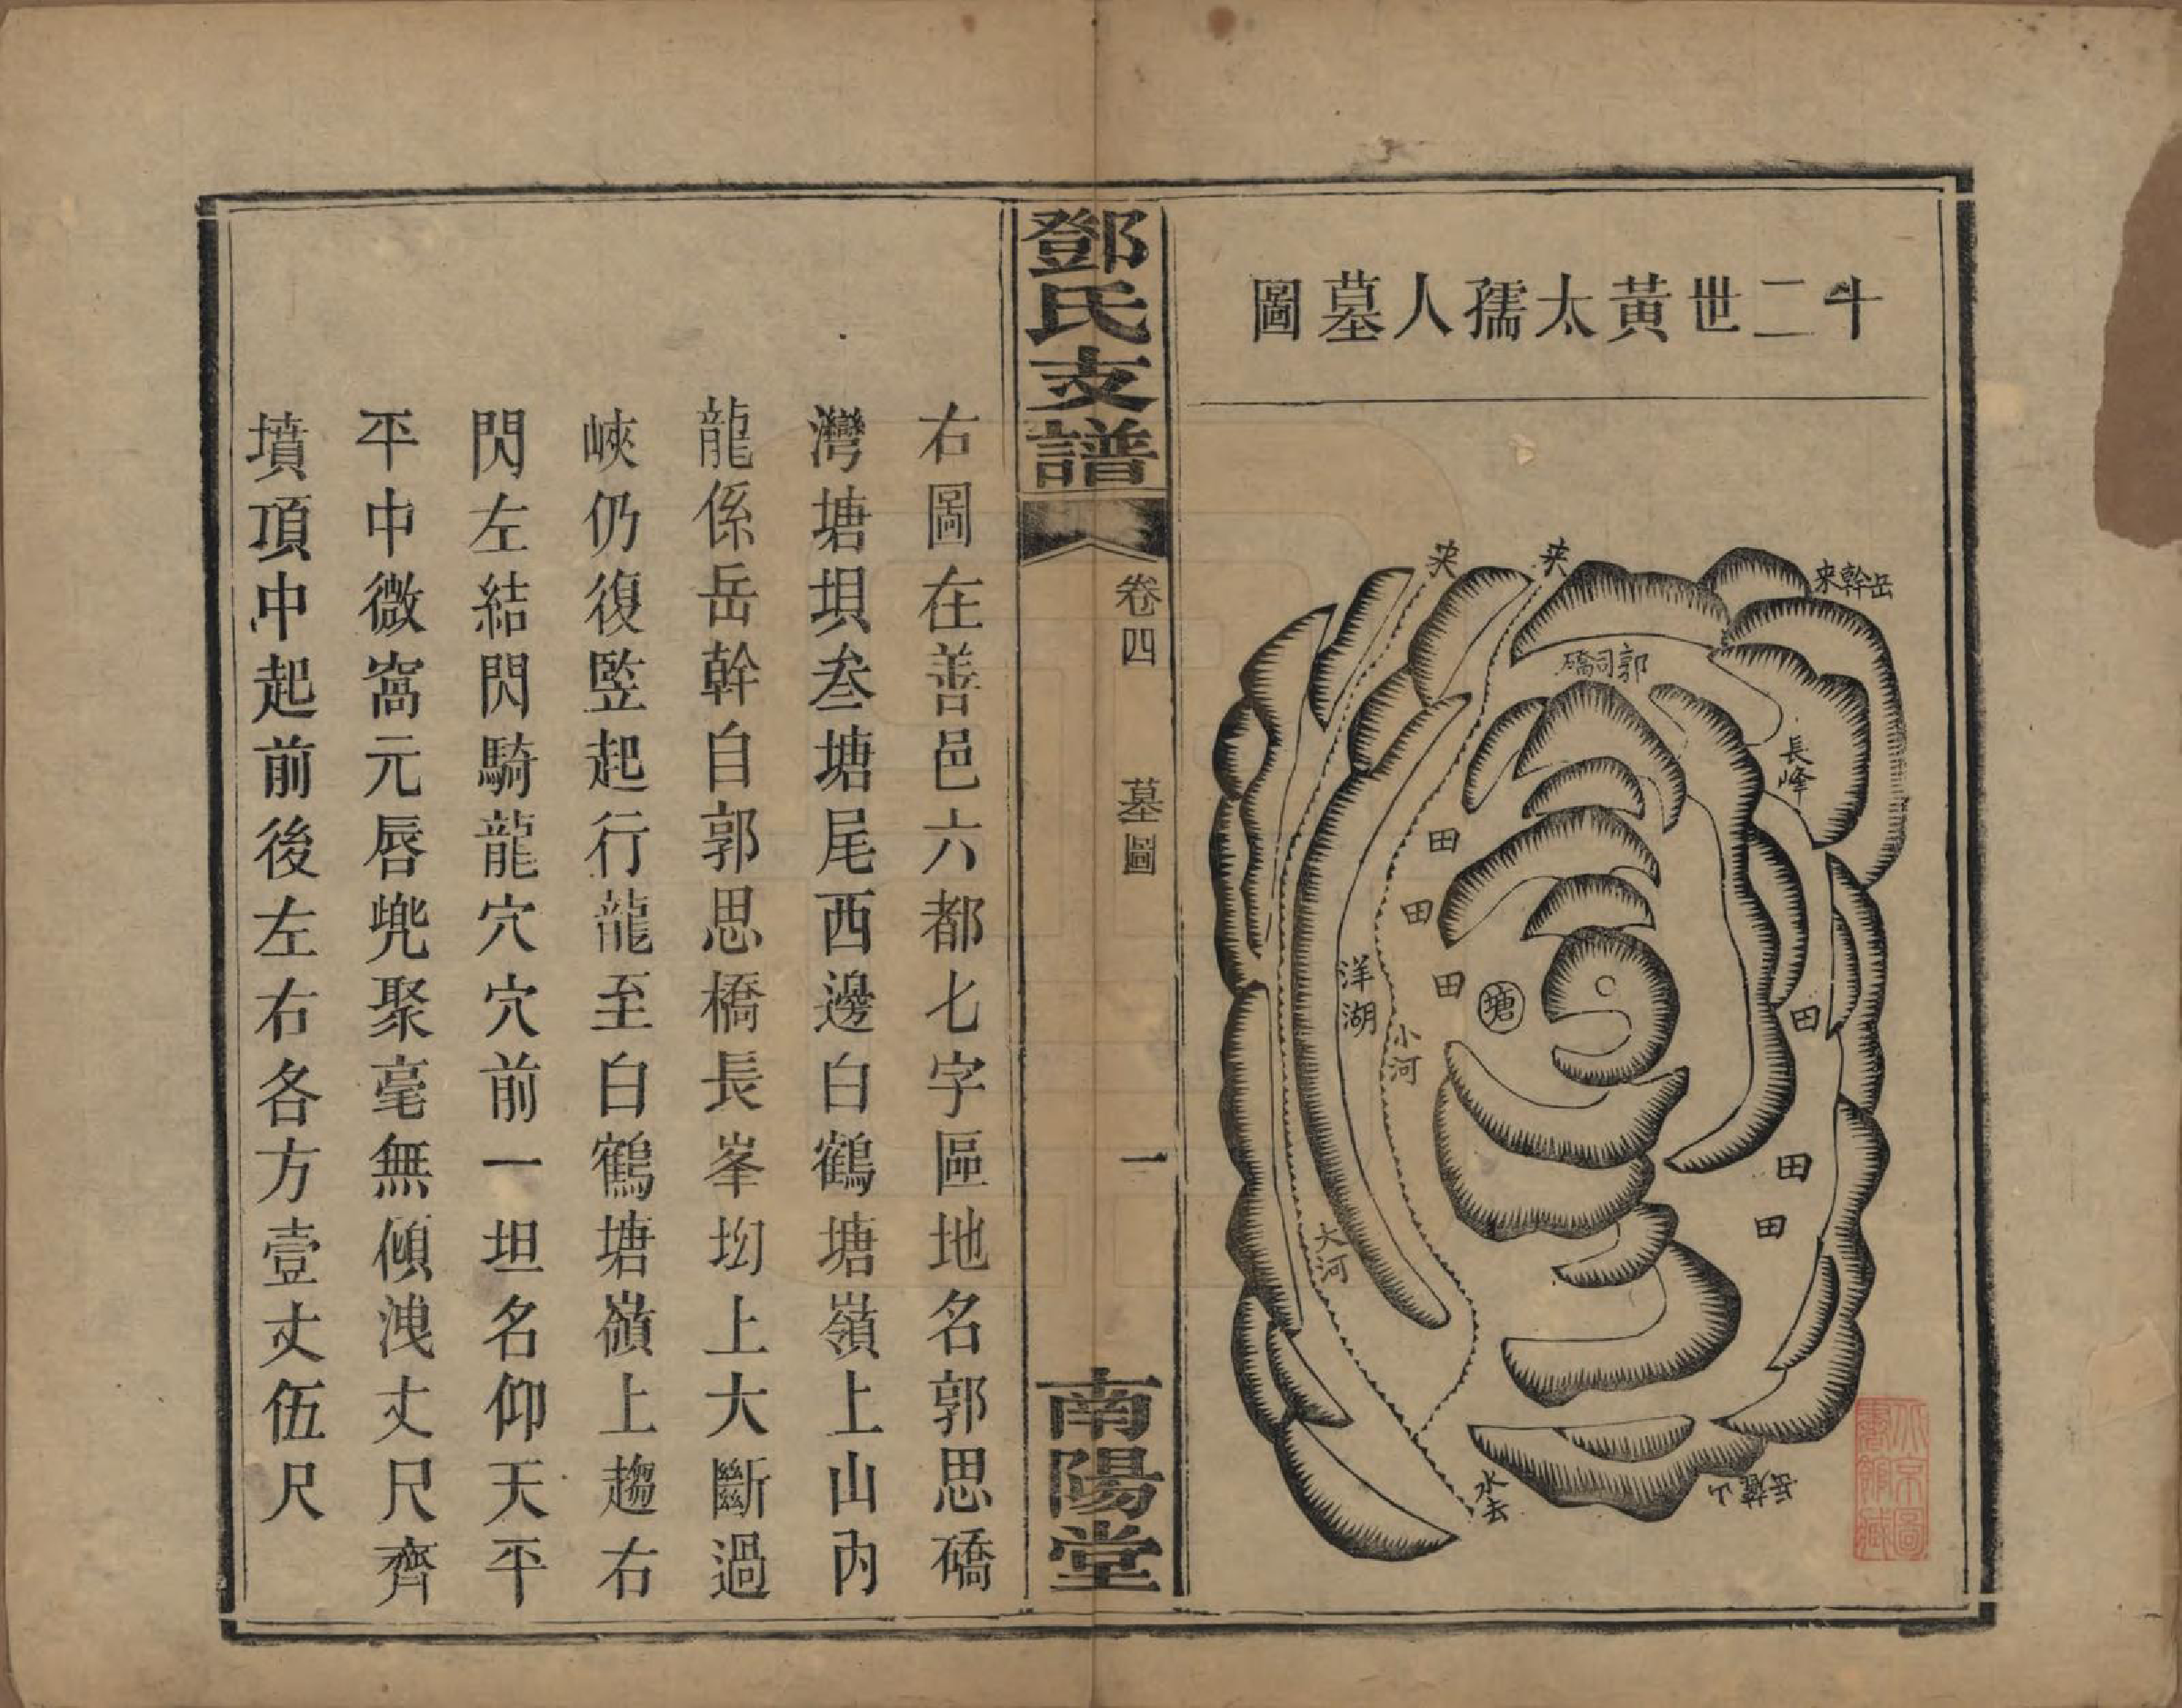 十二世黃太孺人墓圖
岳幹來
夾
夾
郭司礄
長峰
田
田
田
塘
洋湖
小河
田
田
田
大河
水去
鄧氏支譜
卷四
墓圖
一
南陽堂
右圖在善邑六都七字區地名郭思礄
灣塘垻叁塘尾西邊白鶴塘嶺上山內
龍係岳幹自郭思橋長峯㘭上大斷過
峽仍復監起行龍至白鶴塘嶺上趨右
閃左結閃騎龍穴穴前一坦名仰天平
平中微窩元唇兠聚毫無傾洩丈尺齊
墳頂中起前後左右各方壹丈伍尺